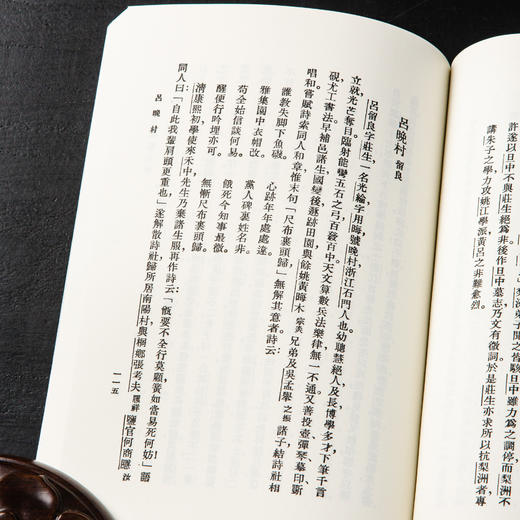 弟子聞之皆駭旦中雖力爲之調停而棃洲不
許遂以旦中不與莊生絕爲非後作旦中墓志乃文有微詞於是莊生亦求所以抗棃洲者專
講朱子之學力攻姚江學派黃呂之非難愈烈。
呂晚村 留良
呂留良字莊生一名光綸字用晦號晚村浙江石門人也幼聰慧絕人及長博學多才下筆千言
立就光芒奪目臨射能彎五石之弓百發百中天文算數兵法樂律無一不通又善投壺彈琴摹印斲
硯尤工書法早補邑諸生國變後遯跡田園與餘姚黃晦木宗炎兄弟及吳孟舉之振諸子結詩社相
唱和嘗賦詩索同人和章惟末句「尺布裹頭歸」無解其意者詩云
誰敎失脚下魚磯 心跡年年處處違
雅集圖中衣帽改 黨人碑裏姓名非
苟全始信談何易 餓死今知事最微
醒便行吟埋亦可 無慚尺布裹頭歸
清康熙初學使來禾中先生乃棄諸生服再作詩云「甑要不全行莫顧簣如當易死何妨」語
同人曰「自此我輩肩頭更重也」遂解散詩社歸所居南陽村與桐鄉張考夫履祥鹽官何商隱汝
呂晚村
一一五